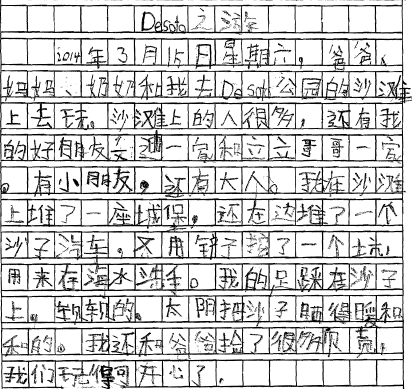 Desoto之游
2014年3月15日星期六，爸爸、
妈妈、奶奶和我去Desoto公园的沙滩
上去玩。沙滩上的人很多，还有我
的好朋友一家和立立哥哥一家
。有小朋友。还有大人。我在沙滩
上堆了一座城堡，还在边堆了一个
沙子汽车，又用铲子挖了一个坑，
用来在海水洗手。我的足踩在沙子
上。软软的。太阳把沙子晒得暖和
和的。我还和爸爸捡了很多贝壳，
我们玩得可开心了。